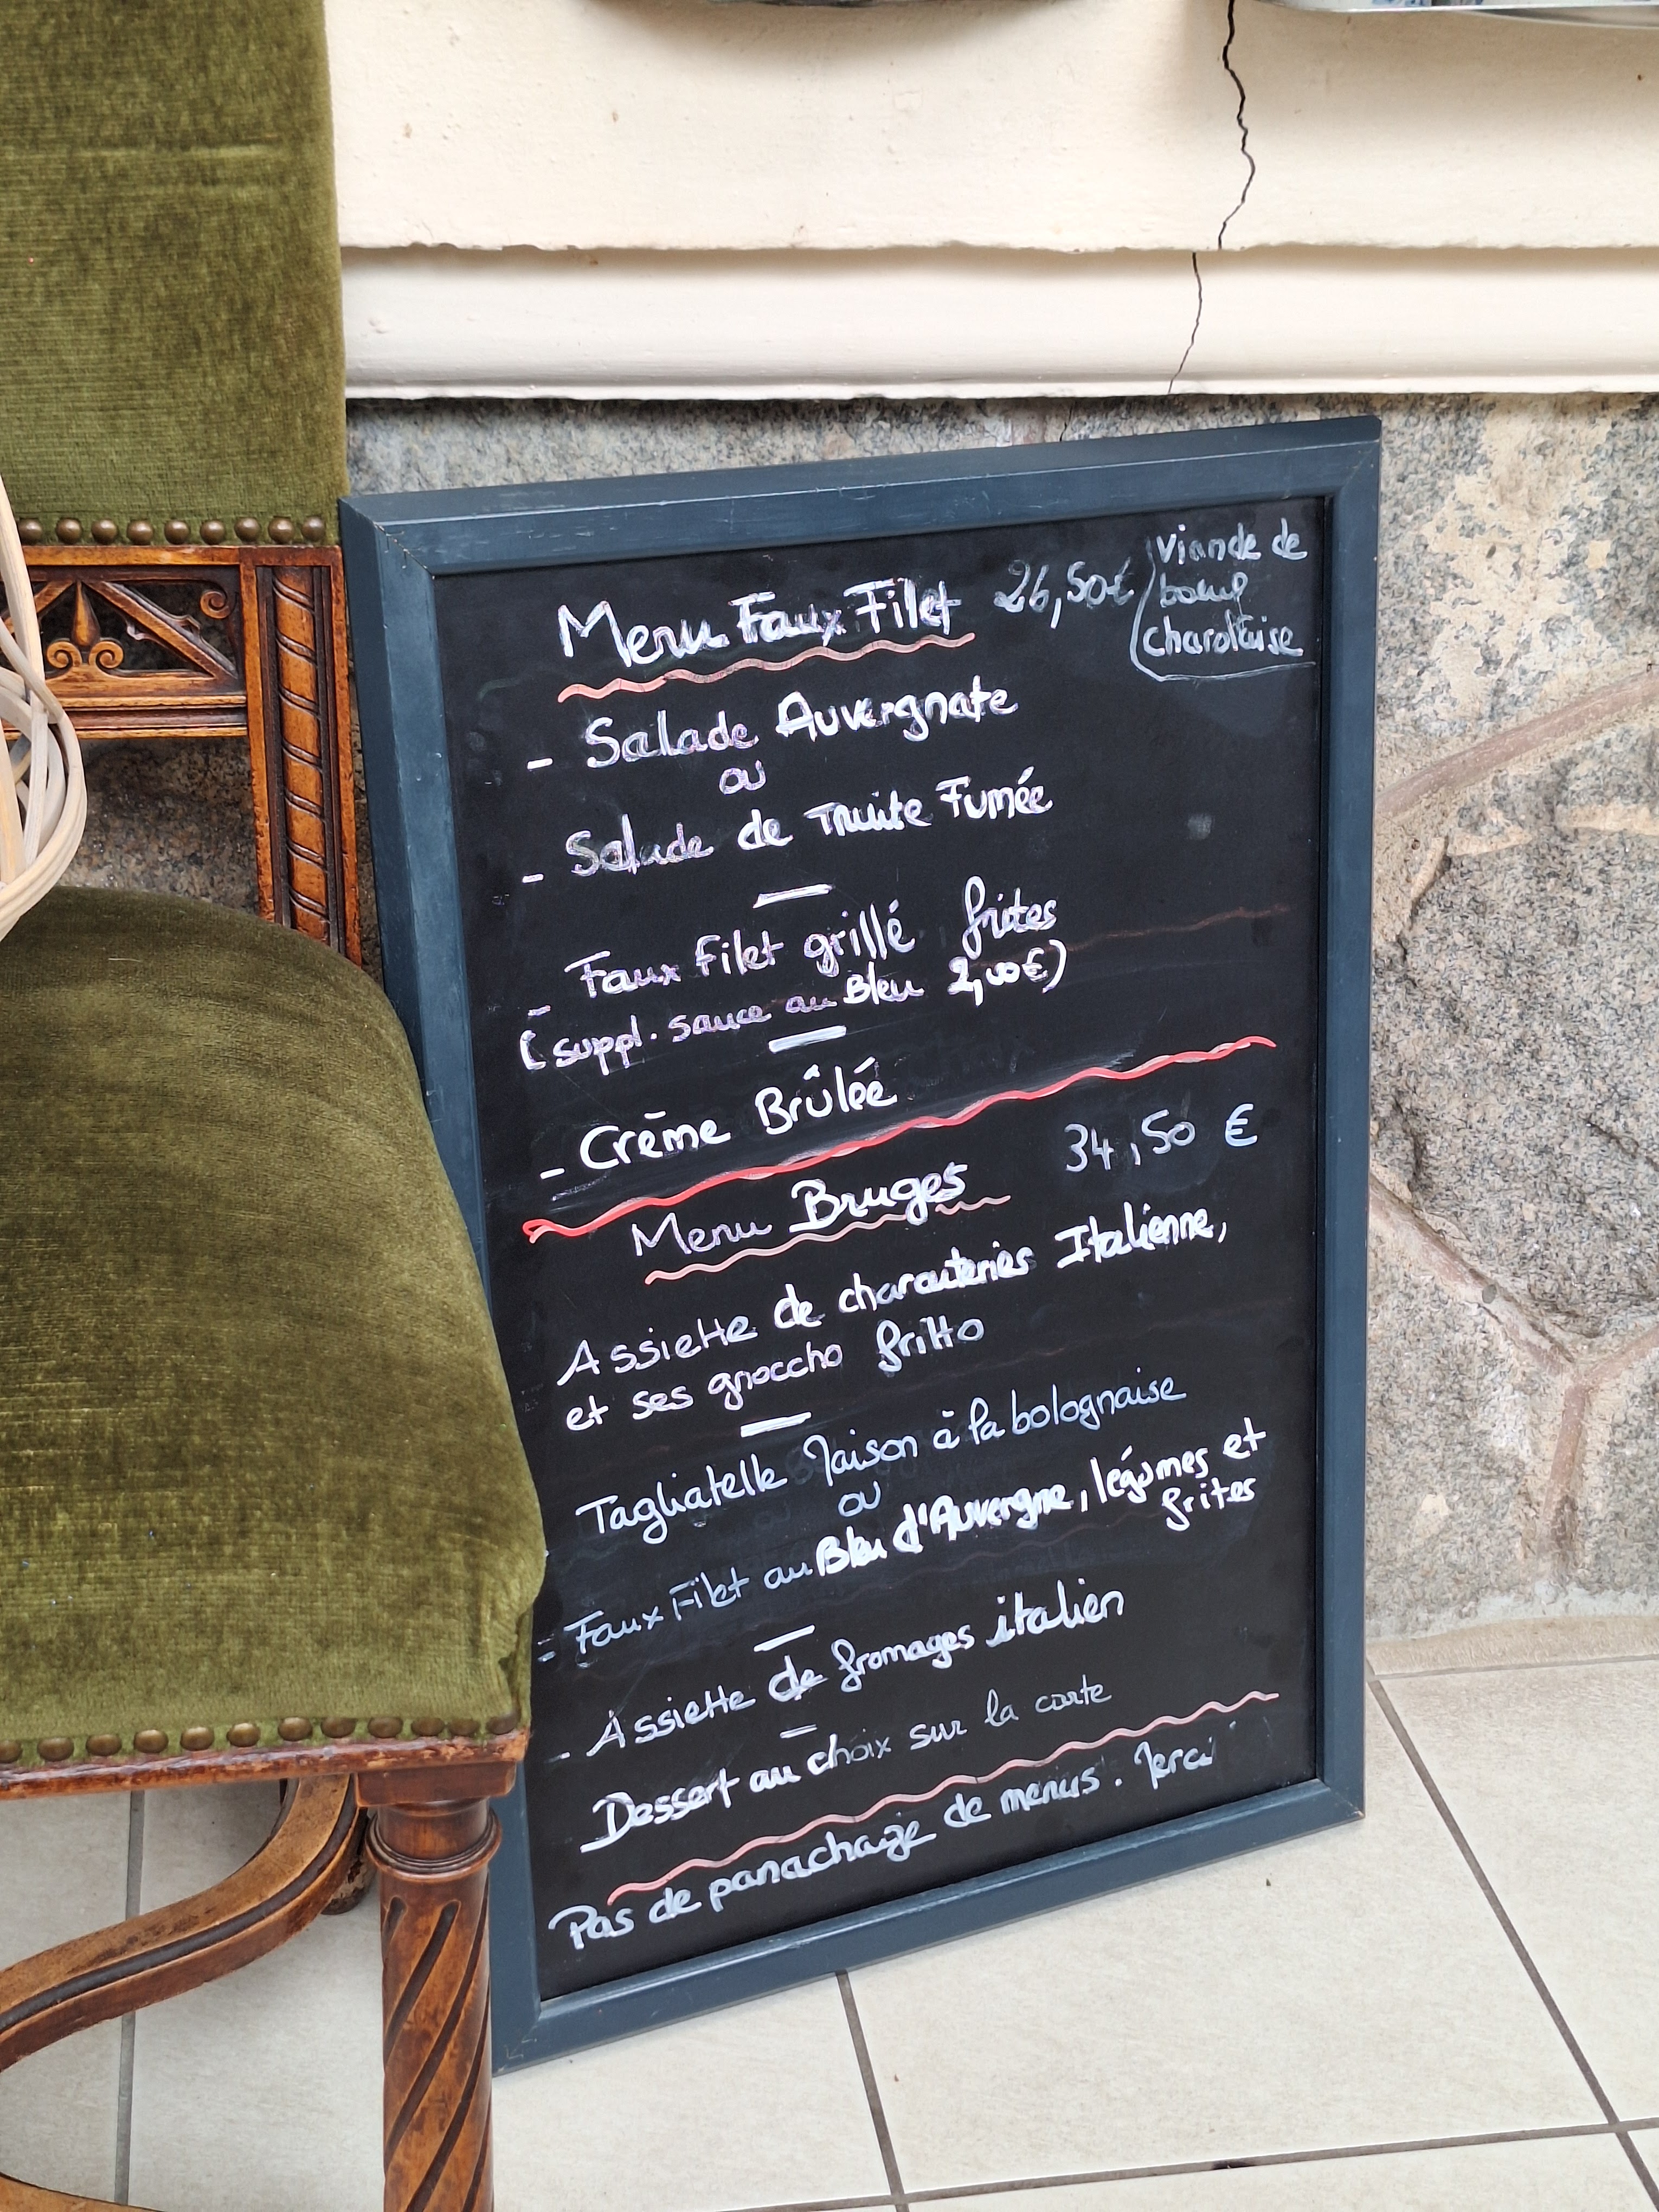 Menu Faux Filet 26,50€ (Viande de
boeuf
charolaise
- Salade Auvergnate
ou
- Salade de Truite Fumée
- Faux Filet grillé, frites
(suppl. sauce au Bleu 2,00€)
- Crème Brûlée
Menu Bruges 34,50 €
Assiette de charcuteries Italienne,
et ses gnoccho fritto
Tagliatelle Maison à la bolognaise
ou
- Faux Filet au Bleu d'Auvergne, légumes et
frites
- Assiette de fromages italien
Dessert au choix sur la carte
Pas de panachage de menus. Merci